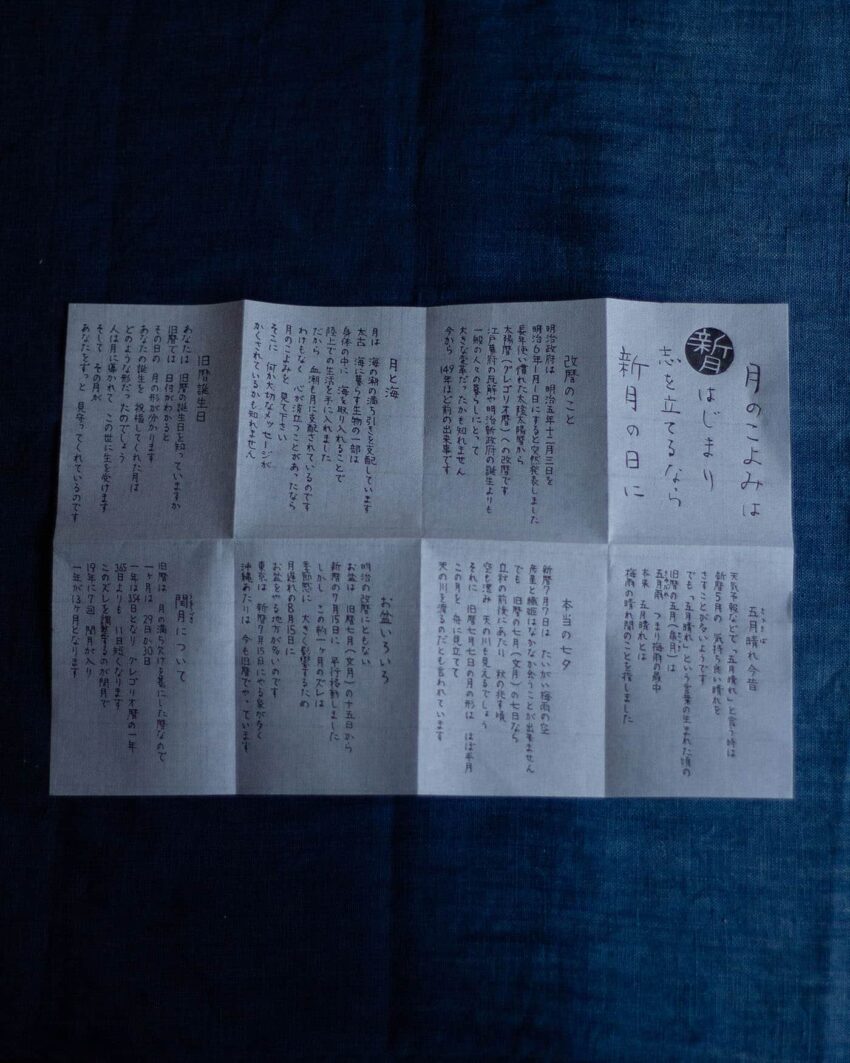 月のこよみは
新月
はじまり
志を立てるなら
新月の日に
改暦のこと
明治政府は 明治五年十二月三日を
明治6年1月1日にすると突然発表しました
長年使い慣れた太陰太陽暦から
太陽暦(グレゴリオ暦)への改暦です
江戸幕府の瓦解や明治新政府の誕生よりも
一般の人々の暮らしにとって
大きな変革だったかも知れません
今から 149年ほど前の出来事です
月と海
月は 海の潮の満ち引きを支配しています
太古 海に暮らす生物の一部は
身体の中に 海を取り入れることで
陸上での生活を手に入れました
だから 血潮も月に支配されているのです
わけもなく 心が波立つことがあったなら
月のこよみを 見て下さい
そこに 何か大切なメッセージが
かくされているかも知れません
旧暦誕生日
あなたは 旧暦の誕生日を知っていますか
旧暦では 日付がわかると
その日の 月の形が分かります
あなたの誕生を 祝福してくれた月は
どのような形だったのでしょう
人は月に導かれて この世に生を受けます
そして その月が
あなたをずっと 見守ってくれているのです
五月晴れ今昔
さつきば
天気予報などで「五月晴れ」と言う時は
新暦5月の 気持ち良い晴れを
さすことが多いようです
でも、「五月晴れ」という言葉の生まれた頃の
旧暦の五月(皐月)は
五月雨 つまり梅雨の最中
本来 五月晴れとは
梅雨の晴れ間のことを指しました
本当の七夕
新暦7月7日は たいがい梅雨の空
彦星と織姫はなかなか会うことが出来ません
でも 旧暦の七月(文月)の七日なら
立秋の前後にあたり 秋の兆す頃
空も澄み 天の川も見えるでしょう
それに 旧暦七月七日の月の形は ほぼ半月
この月を 舟に見立てて
天の川を渡るのだとも言われています
お盆いろいろ
明治の改暦にともない
お盆は 旧暦七月(文月)の十五日から
新暦の7月15日に 平行移動しました
しかし この約一ヶ月のズレは
季節感に 大きく影響するため
月遅れの8月15日に
お盆をやる地方が多いのです
東京は 新暦7月15日にやる家が多く
沖縄あたりは 今も旧暦でやっています
閏月について
うるうづき
旧暦は 月の満ち欠けを基にした暦なので
一ヶ月は 29日か30日
一年は354日となり グレゴリオ暦の一年
365日よりも 11日短くなります
このズレを調整するのが閏月で
19年に7回 閏月が入り
一年が13ヶ月となります